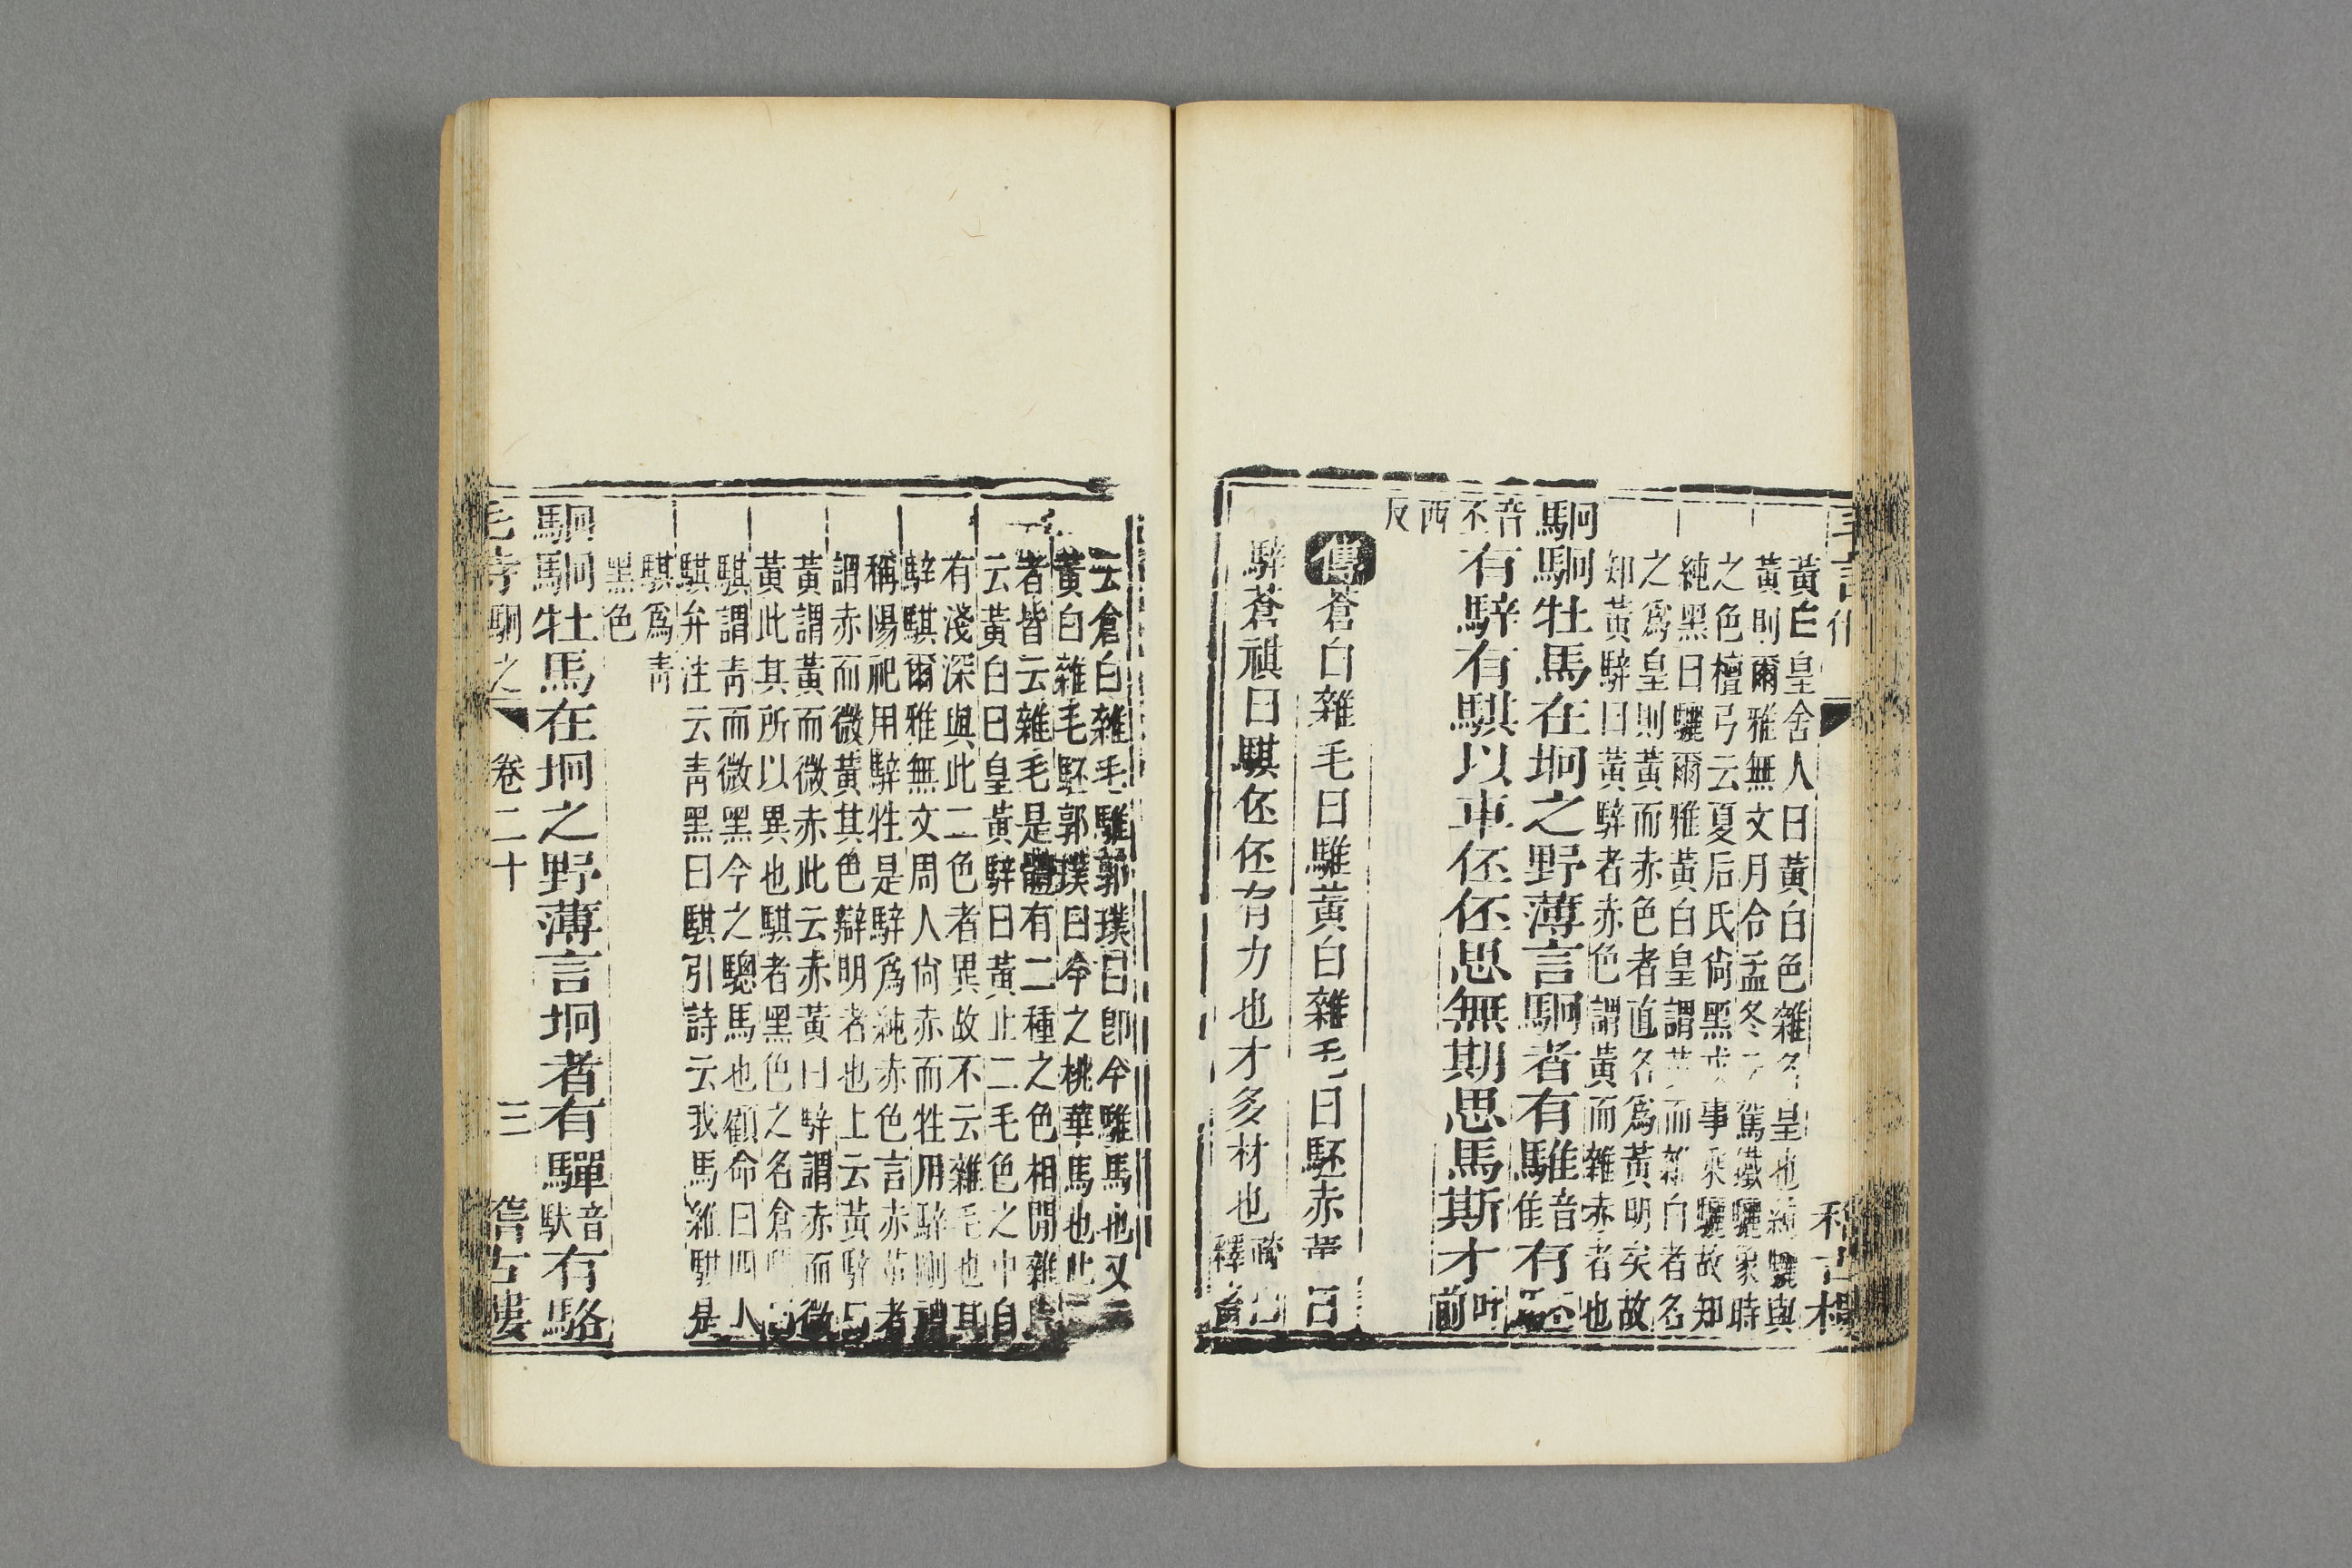 黃白皇舍人曰黃白色雜名皇也純驪與
黃則爾雅無文月令孟冬云駕鐵驪象時
之色檀弓云夏后氏尙黑戎事乘驪故知
純黑曰驪爾雅黃白皇謂黃而雜白者名
之爲皇則黃而赤色者直名爲黃明矣故
知黃騂曰黃騂者赤色謂黃而雜赤者也
駉駉牡馬在坰之野薄言駉者有騅音隹有駓
音不有騂有騏以車伾伾思無期思馬斯才叶前
西反
傳蒼白雜毛曰騅黃白雜毛曰駓赤黃曰
騂蒼祺曰騏伾伾有力也才多材也釋畜
云倉白雜毛騅郭璞曰卽今騅馬也又云
黃白雜毛駓郭璞曰今之桃華馬也此二
者皆云雜毛是體有二種之色相間雜上
云黃白曰皇黃騂曰黃止二毛色之中自
有淺深與此二色者異故不云雜毛也其
騂騏爾雅無文周人尙赤而牲用騂剛禮
稱陽祀用騂牲是騂爲純赤色言赤黃者
謂赤而微黃其色辯明者也上云黃騂曰
黃謂黃而微赤此云赤黃曰騂謂赤而微
黃此其所以異也騏者黑色之名倉
騏謂靑而微黑今之驄馬也顧命曰四人
騏弁注云靑黑曰騏引詩云我馬維騏是
騏爲靑
黑色
駉駉牡馬在坰之野薄言坰者有驒音馱有駱
毛詩駉之 卷二十 三 稽古樓